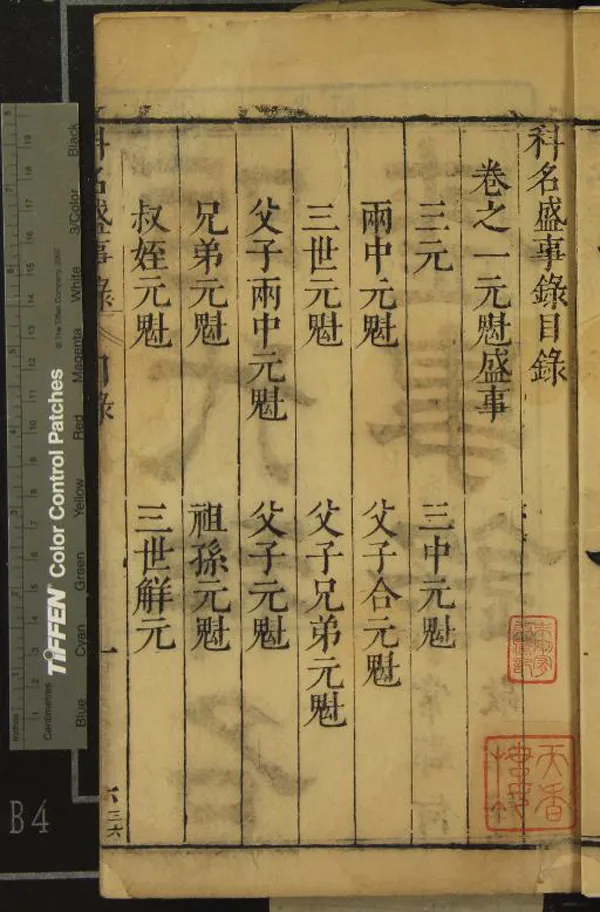 科名盛事錄目錄
卷之一元魁盛事
三元
三中元魁
兩中元魁
父子合元魁
三世元魁
父子兄弟元魁
父子兩中元魁
父子元魁
兄弟元魁
祖孫元魁
叔姪元魁
三世解元
科名盛事錄
目錄
一
三六
天香
Black
3/Color
White
Magenta
Red
Yellow
Green
Cyan
Blue
© The Tiffen Company, 2007
TIFFEN Color Control Patches
Centimetres
Inches
B4